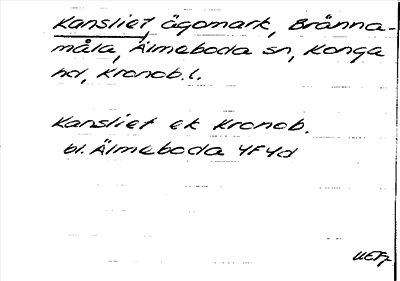 Kansliet, ägomark, Bränna-
måla, Älmeboda sn, Konga
hd, Kronob. l.
Kansliet ek Kronob.
bl. Älmeboda 4F4d